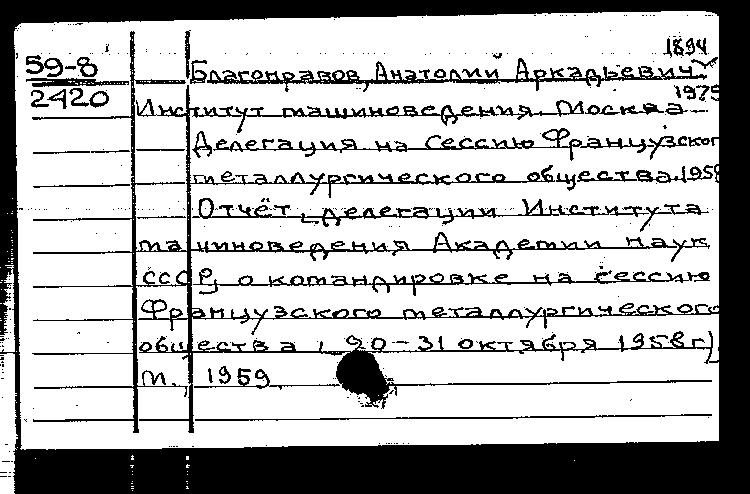 1894
59-8 Благонравов, Анатолий Аркадьевич.
1975
2420 Институт машиноведения. Москва
Делегация на Сессию Французског
металлургического общества. 1958
Отчёт делегации Института
машиноведения Академии наук
СССР, о командировке на сессию
Французского металлургического
общества, 20-31 октября 1958 г),
М., 1959.